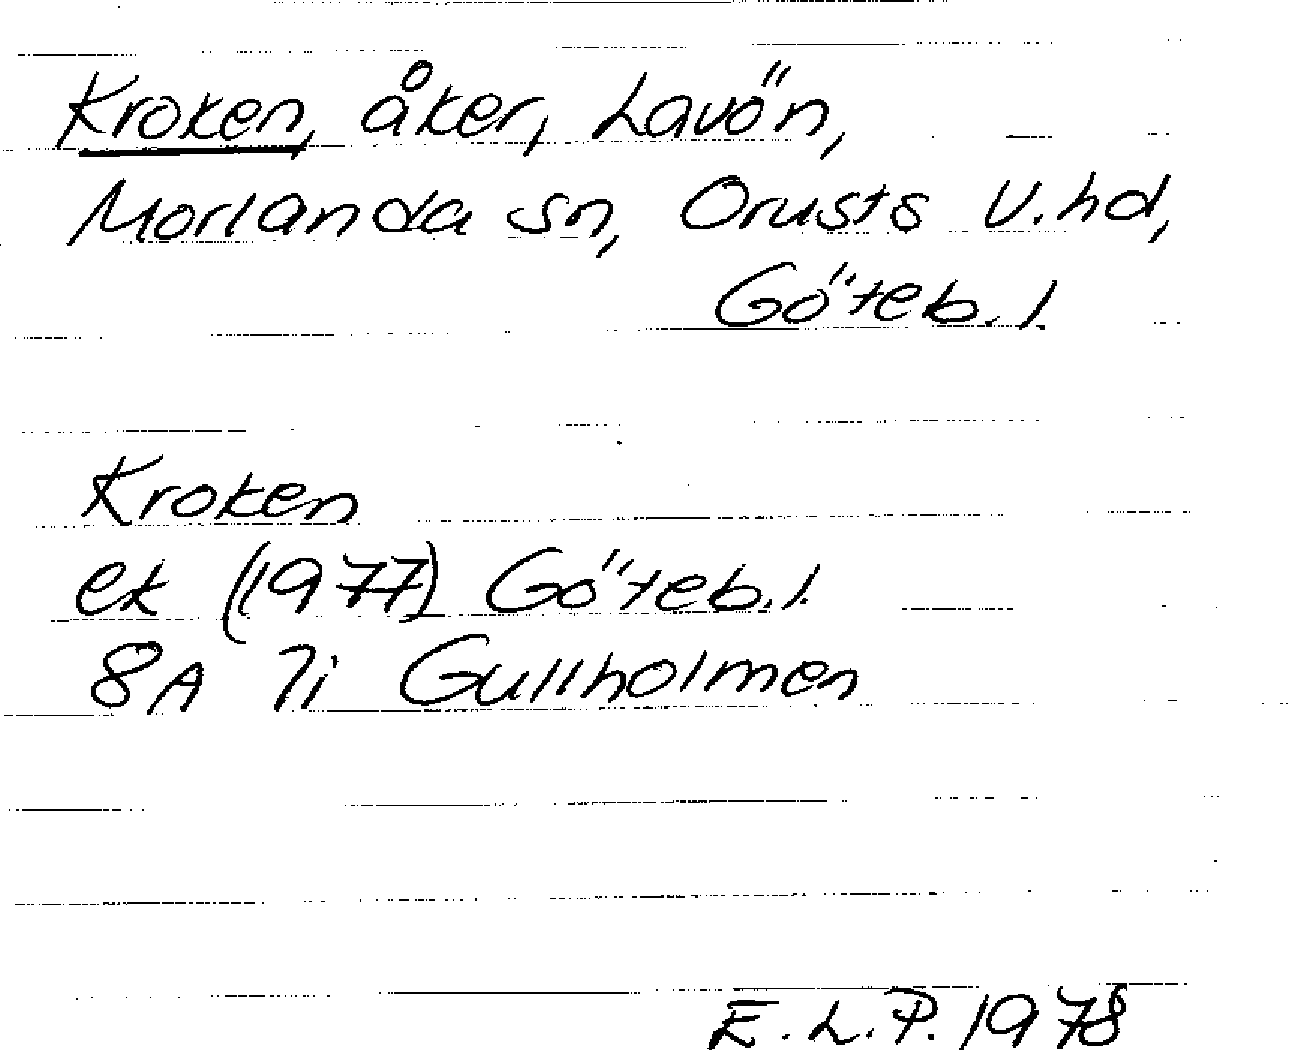 Kroken, åker, Lavön,
Morlanda sn, Orusts V.hd,
Göteb.l.
Kroken
ek (1977) Göteb.l.
8A 7i Gullholmen
E.L.P. 1978